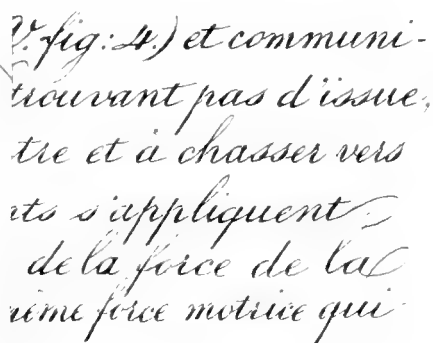 V. fig: 4.) et communi-
trouvant pas d'issue,
tre et à chasser vers
nts s'appliquent
de la force de la
même force motrice qui